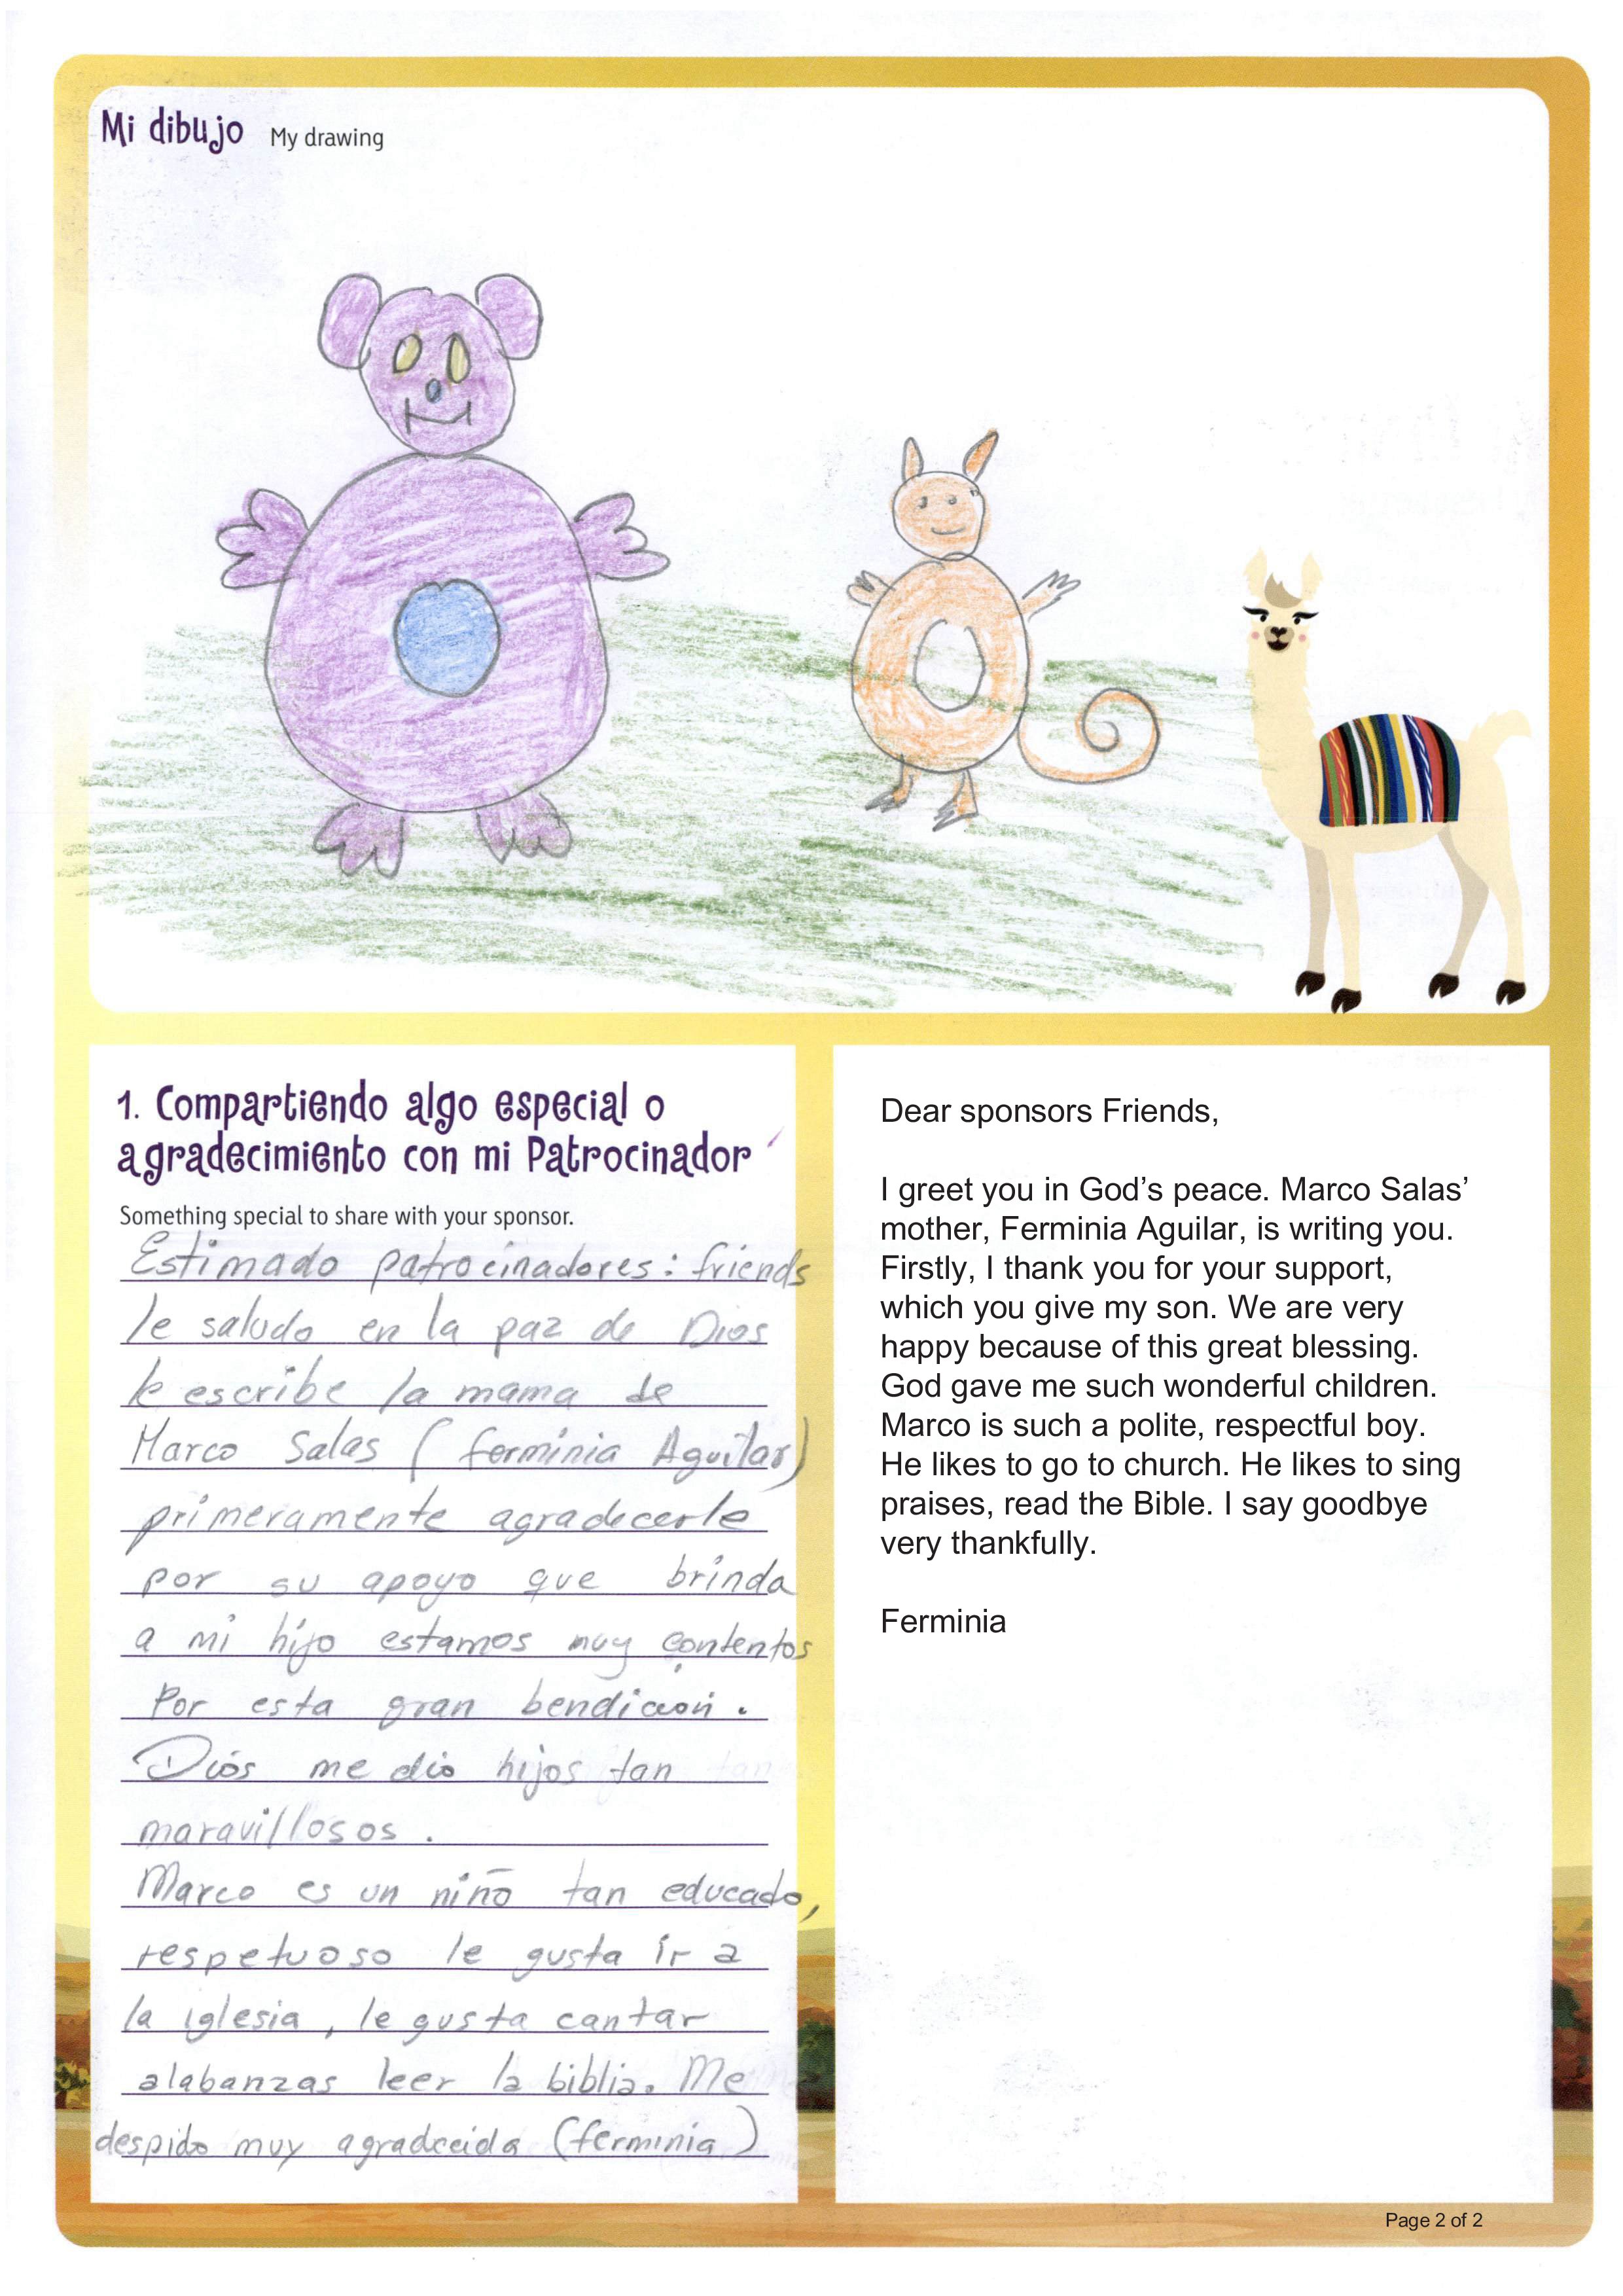 Mi dibujo My drawing
1. Compartiendo algo especial o
agradecimiento con mi Patrocinador
Something special to share with your sponsor.
Estimado patrocinadores: friends
le saludo en la paz de Dios
le escribe la mama de
Marco Salas (ferminia Aguilar)
primeramente agradecerle
por su apoyo que brinda
a mi hijo estamos muy contentos
Por esta gran bendición.
Diós me dio hijos tan
maravillosos.
Marco es un niño tan educado,
respetuoso le gusta ir a
la iglesia, le gusta cantar
alabanzas leer la biblia. Me
despido muy agradecida (ferminia)
Dear sponsors Friends,
I greet you in God’s peace. Marco Salas’
mother, Ferminia Aguilar, is writing you.
Firstly, I thank you for your support,
which you give my son. We are very
happy because of this great blessing.
God gave me such wonderful children.
Marco is such a polite, respectful boy.
He likes to go to church. He likes to sing
praises, read the Bible. I say goodbye
very thankfully.
Ferminia
Page 2 of 2